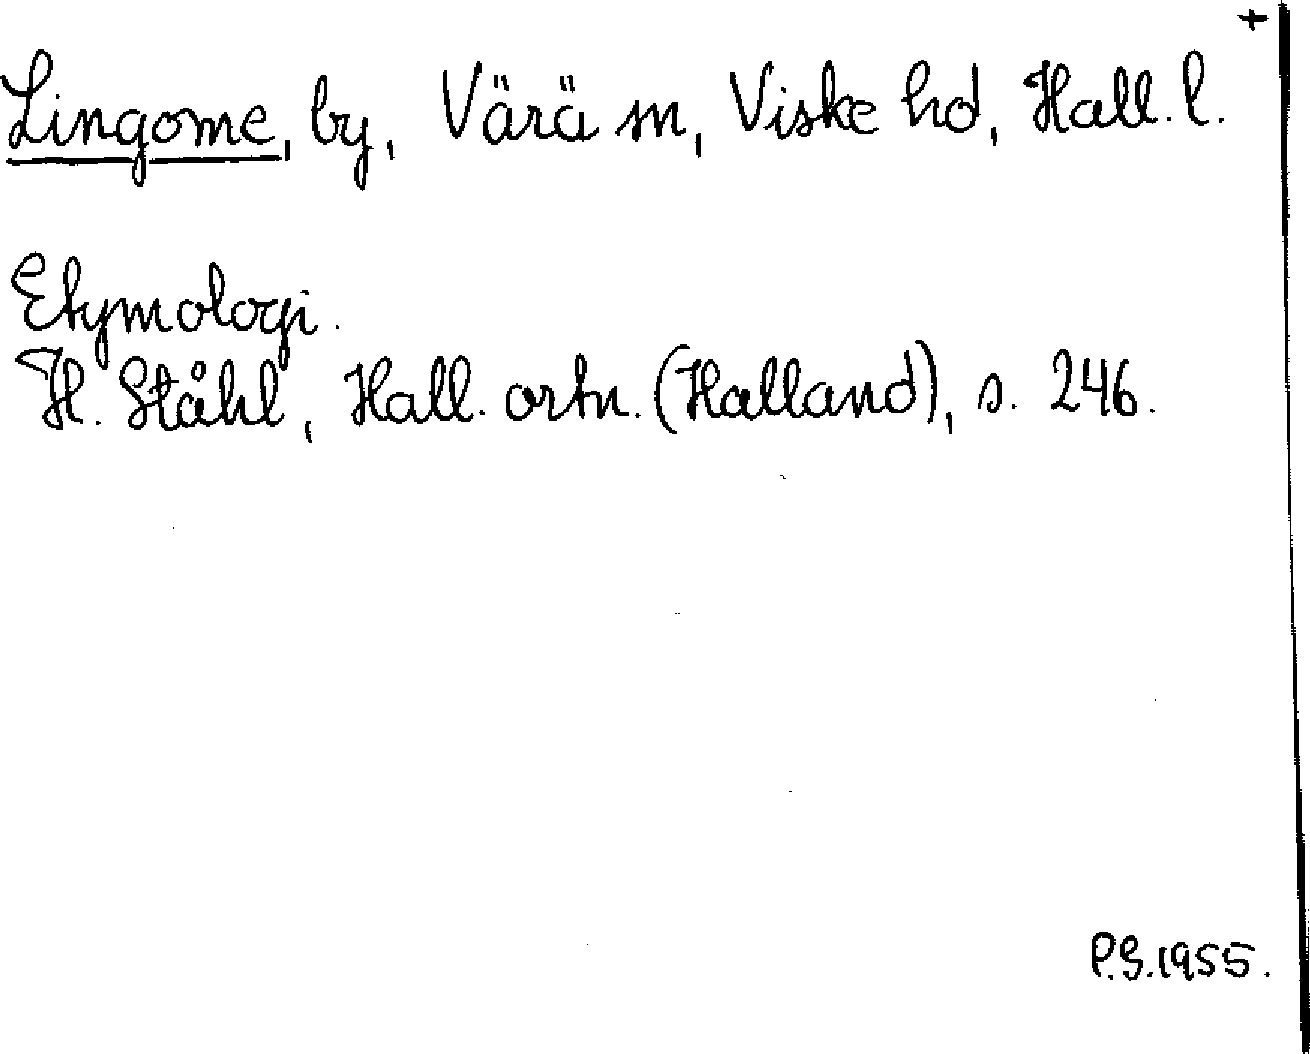 +
Lingome, by, Värä sn, Viske hd, Hall. l.
Etymologi.
H. Ståhl, Hall. ortn. (Halland), s. 246.
P.S. 1955.